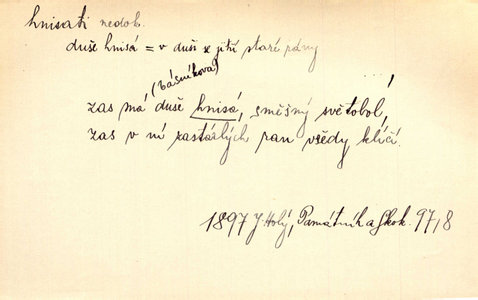 hnisati nedok.
duše hnisá = v duši se jitří staré rány
(básníkova)
zas má duše hnisá, směšný světobol,
zas v ní zastaralých ran vředy klíčí.
1897 J. Holý, Památník a Skok. 97/8